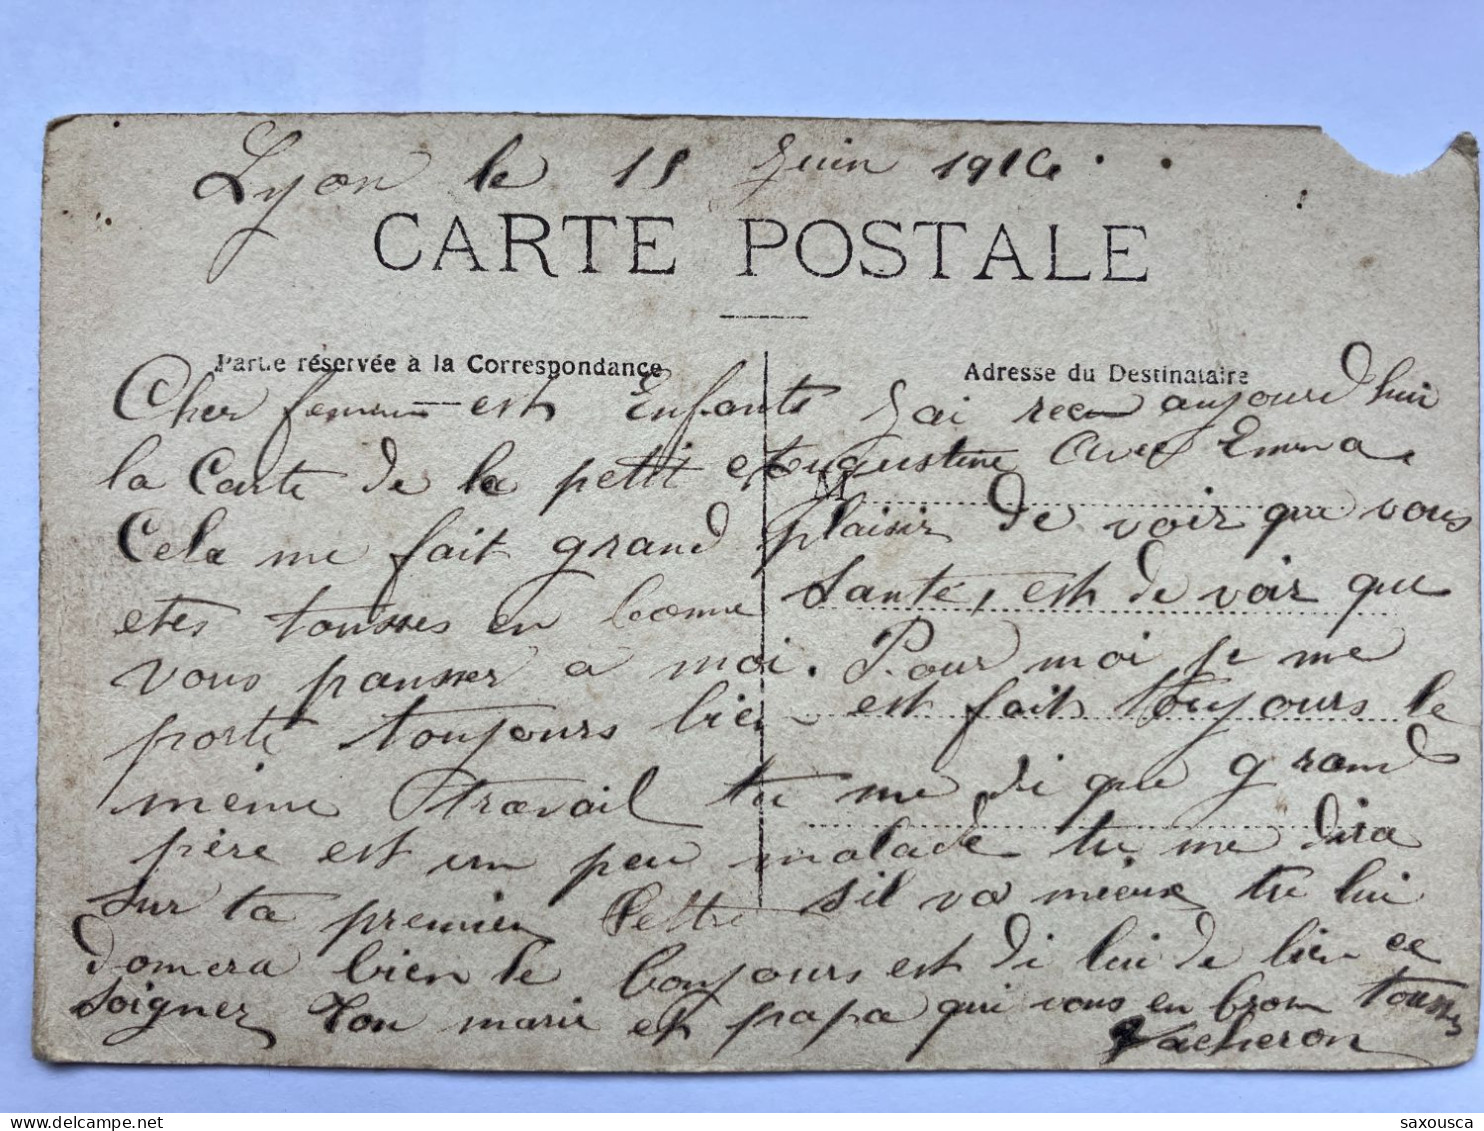 Lyon le 15 Juin 1916
CARTE POSTALE
Partie réservée à la Correspondance
Adresse du Destinataire
Cher femme est Enfants J'ai recu aujourd'hui
la Carte de la petit Augustine Avec Emma
Cela me fait grand plaisir de voir que vous
etes tousses en bonne santé, est de voir que
vous pansser a moi. Pour moi je me
porte toujours bien est fait toujours le
même travail tu me di que grand
père est un peu malade tu me dira
sur ta premier lettre sil va mieux tu lui
domera bien le bonjours est di lui de bien ce
soigner Ton marie et papa qui vous en brom tousses
Vacheron
saxousca